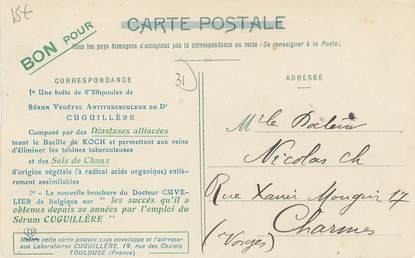 15€
BON POUR
CARTE POSTALE
Tous les pays étrangers n'acceptent pas la correspondance au recto (Se renseigner à la Poste.)
CORRESPONDANCE
1º Une boîte de 6 ampoules de
SÉRUM VÉGÉTAL ANTITUBERCULEUX DU Dr
CUGUILLÈRE
Composé par des Diastases alliacées
tuant le Bacille de KOCH et permettant aux reins
d'éliminer les toxines tuberculeuses
et des Sels de Chaux
d'origine végétale (à radical acide organique) entiè-
rement assimilables
2º - La nouvelle brochure du Docteur CUVE-
LIER de Belgique sur "les succès qu'il a
obtenus depuis 20 années par l'emploi du
Sérum CUGUILLÈRE"
Mettre cette carte postale sous enveloppe et l'adresser
aux Laboratoires CUGUILLÈRE, 19, rue des Chalets
TOULOUSE (France)
31
ADRESSE
Mr le Docteur
Nicolas ch
Rue Xavier Mougin 17
Charmes
(Vosges)